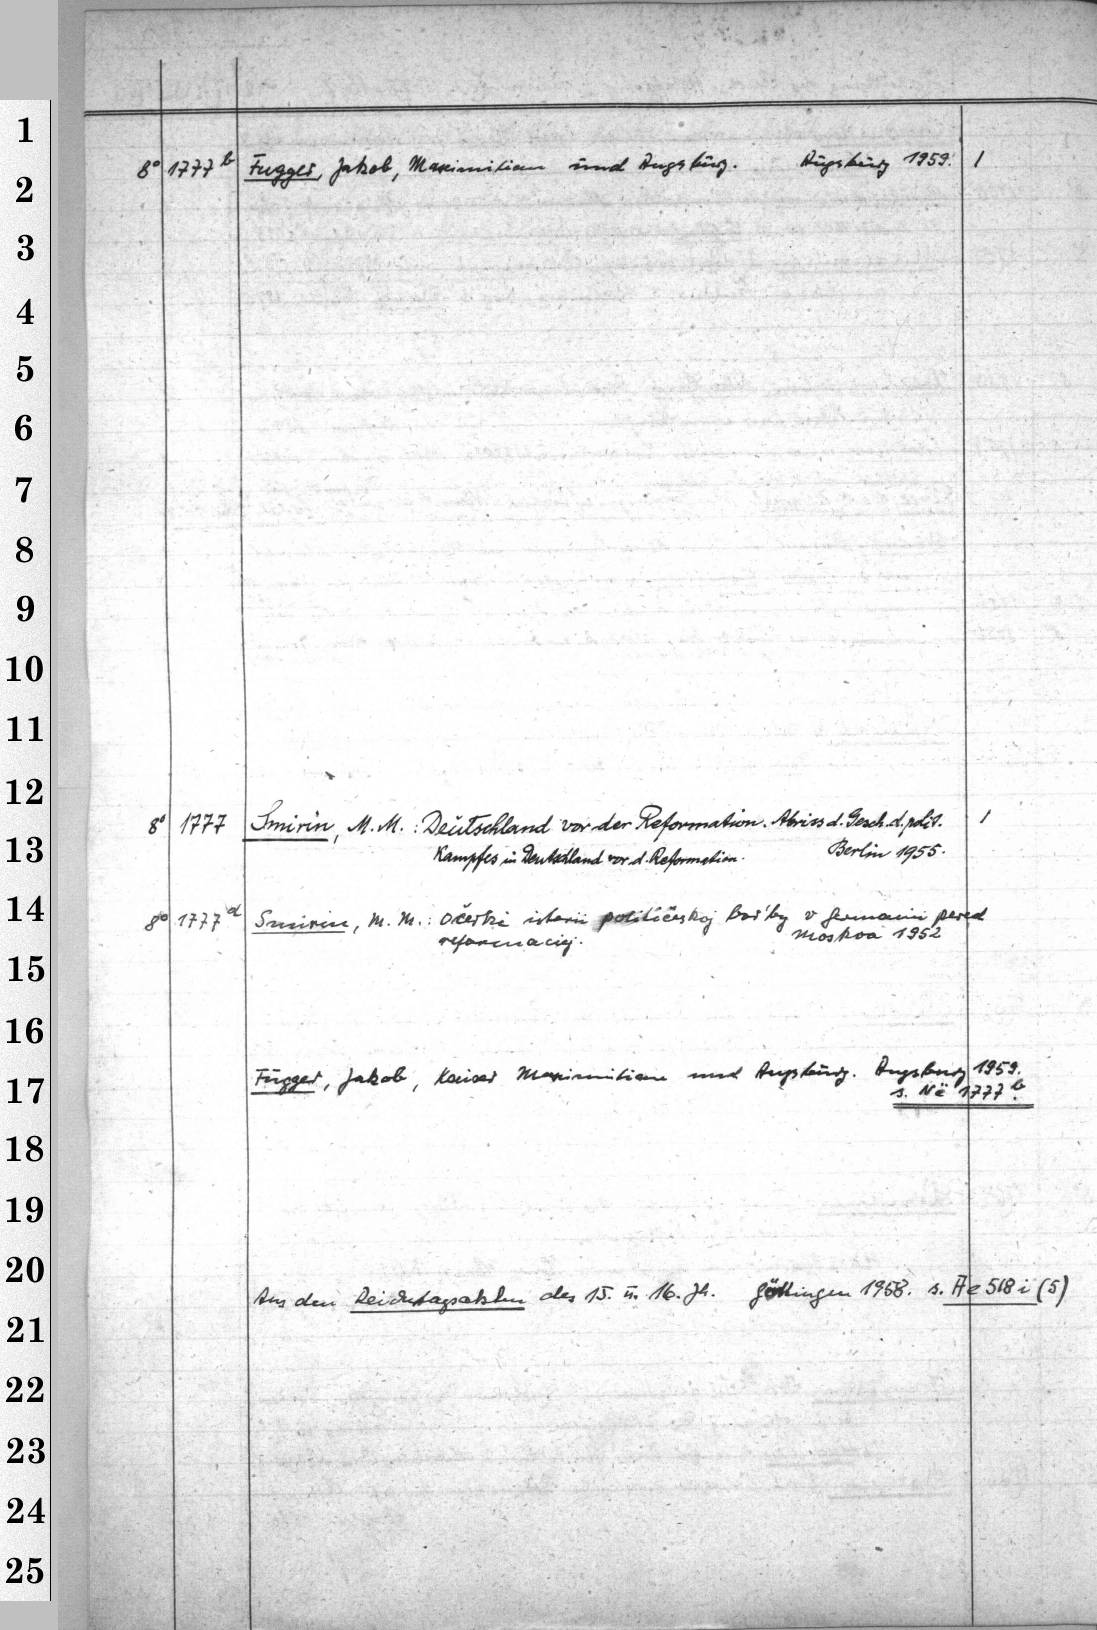 1
2
3
4
5
6
7
8
9
10
11
12
13
14
15
16
17
18
19
20
21
22
23
24
25
8° 1777 b Fugger, Jakob, Maximilian und Augsburg. Augsburg 1959. 1
8° 1777 Smirin, M. M.: Deutschland vor der Reformation. Abriss d. Gesch. d. polit. 1
Kampfes in Deutschland vor d. Reformation. Berlin 1955.
8° 1777 d Smirin, M. M.: Očerki istorii političeskoj bor'by v Germanii pered
reformaciej. Moskva 1952
Fugger, Jakob, Kaiser Maximilian und Augsburg. Augsburg 1959.
s. Në 1777 b.
Aus den Reichstagsakten des 15. u. 16. Jh. Göttingen 1958. s. Ae 518 i (5)